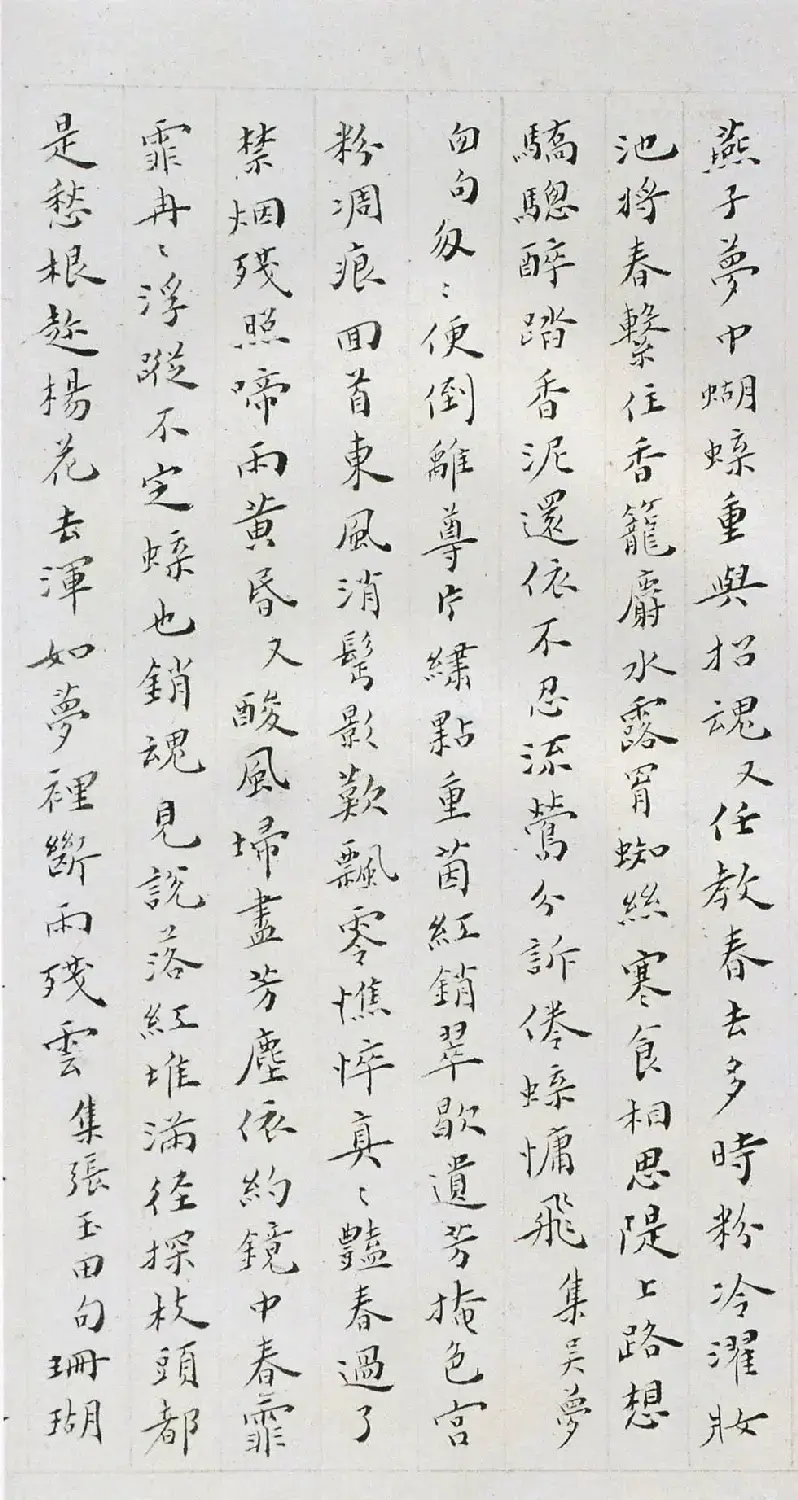 燕子夢中蝴蝶重與招魂又任教春去多時粉冷濯妝
池將春繫住香籠麝水露罥蜘絲寒食相思隄上路想
驕驄醉踏香泥還依不忍流鶯分訴倦蝶慵飛集吳夢
囪句匆〻便倒離尊片繡點重茵紅銷翠歇遺芳掩色宮
粉凋痕回首東風消鬢影歎飄零憔悴真〻豔春過了
禁烟殘照啼雨黃昏又酸風埽盡芳塵依約鏡中春霏
霏冉〻浮蹤不定蝶也銷魂見說落紅堆滿徑探枝頭都
是愁根趂楊花去渾如夢裡斷雨殘雲集張玉田句珊瑚